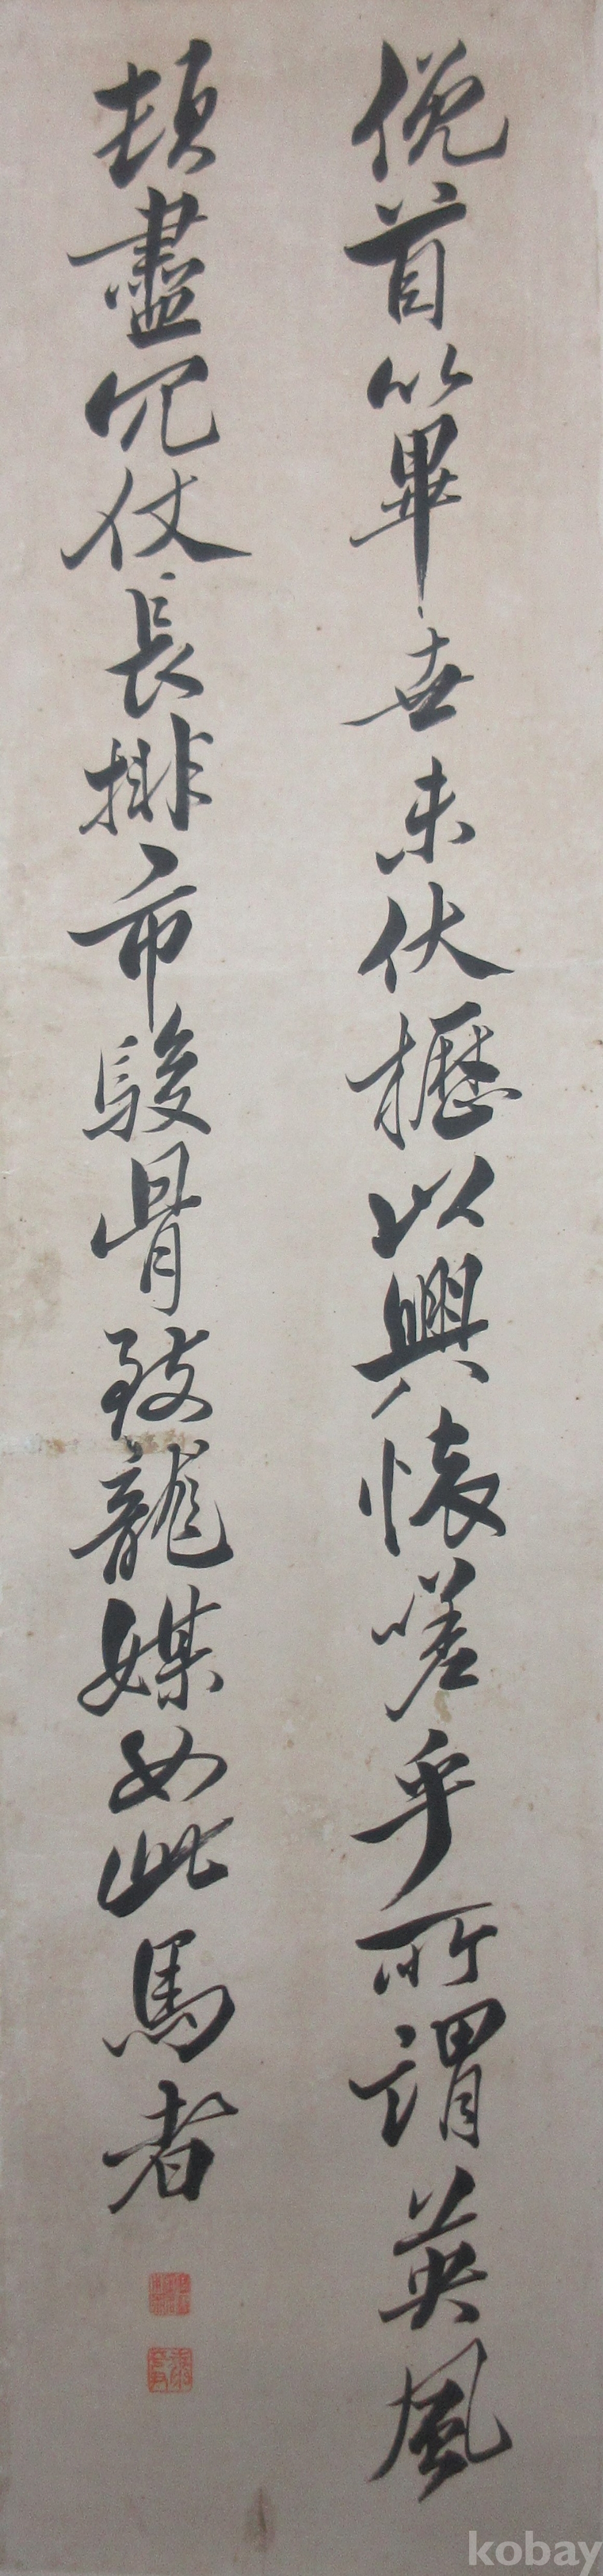 俛首箄畢世未伏櫪以興懷嗟乎所謂英風
頓盡冗仗長排市駿骨致龍媒如此馬者
kobay